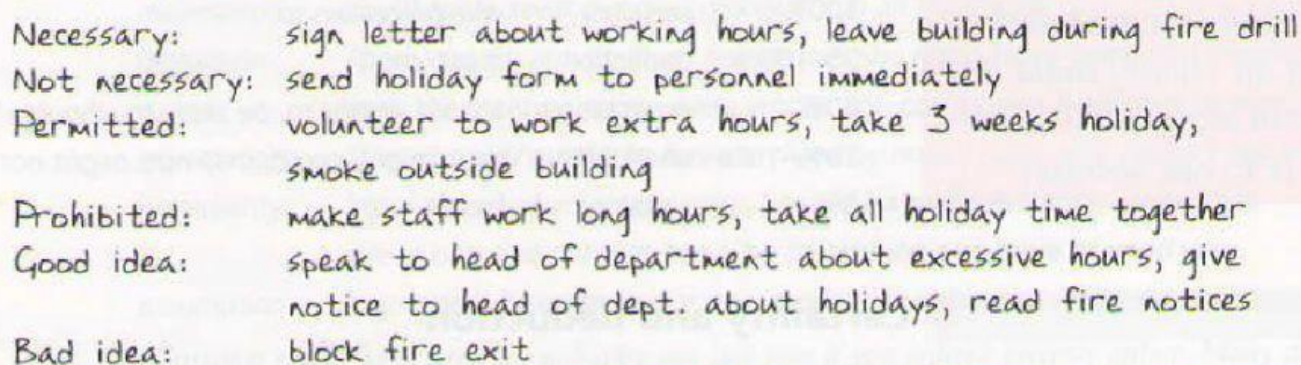 Necessary: sign letter about working hours, leave building during fire drill
Not necessary: send holiday form to personnel immediately
Permitted: volunteer to work extra hours, take 3 weeks holiday,
smoke outside building
Prohibited: make staff work long hours, take all holiday time together
Good idea: speak to head of department about excessive hours, give
notice to head of dept. about holidays, read fire notices
Bad idea: block fire exit